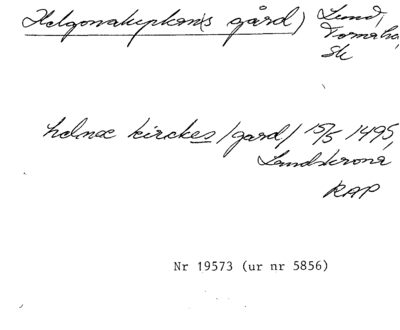 Helgonakyrkan(s gård) Lund,
Torna hd,
Sk
helnæ kirckes /gard/ 15/5 1495,
Landskrona
RAP
Nr 19573 (ur nr 5856)